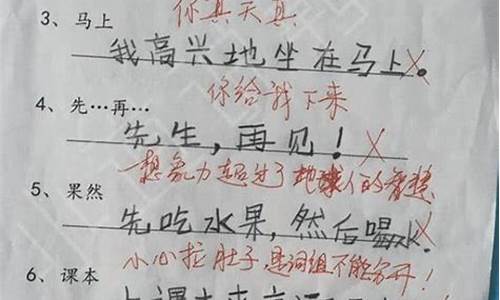 你真天真
3、马上
我高兴地坐在马上。
你给我下来
4、先…再…
先生，再见！
想象力超过了地球人的智慧
5、果然
先吃水果，然后喝水。
小心拉肚子，是词组不能分开！
6、课本
上课本来